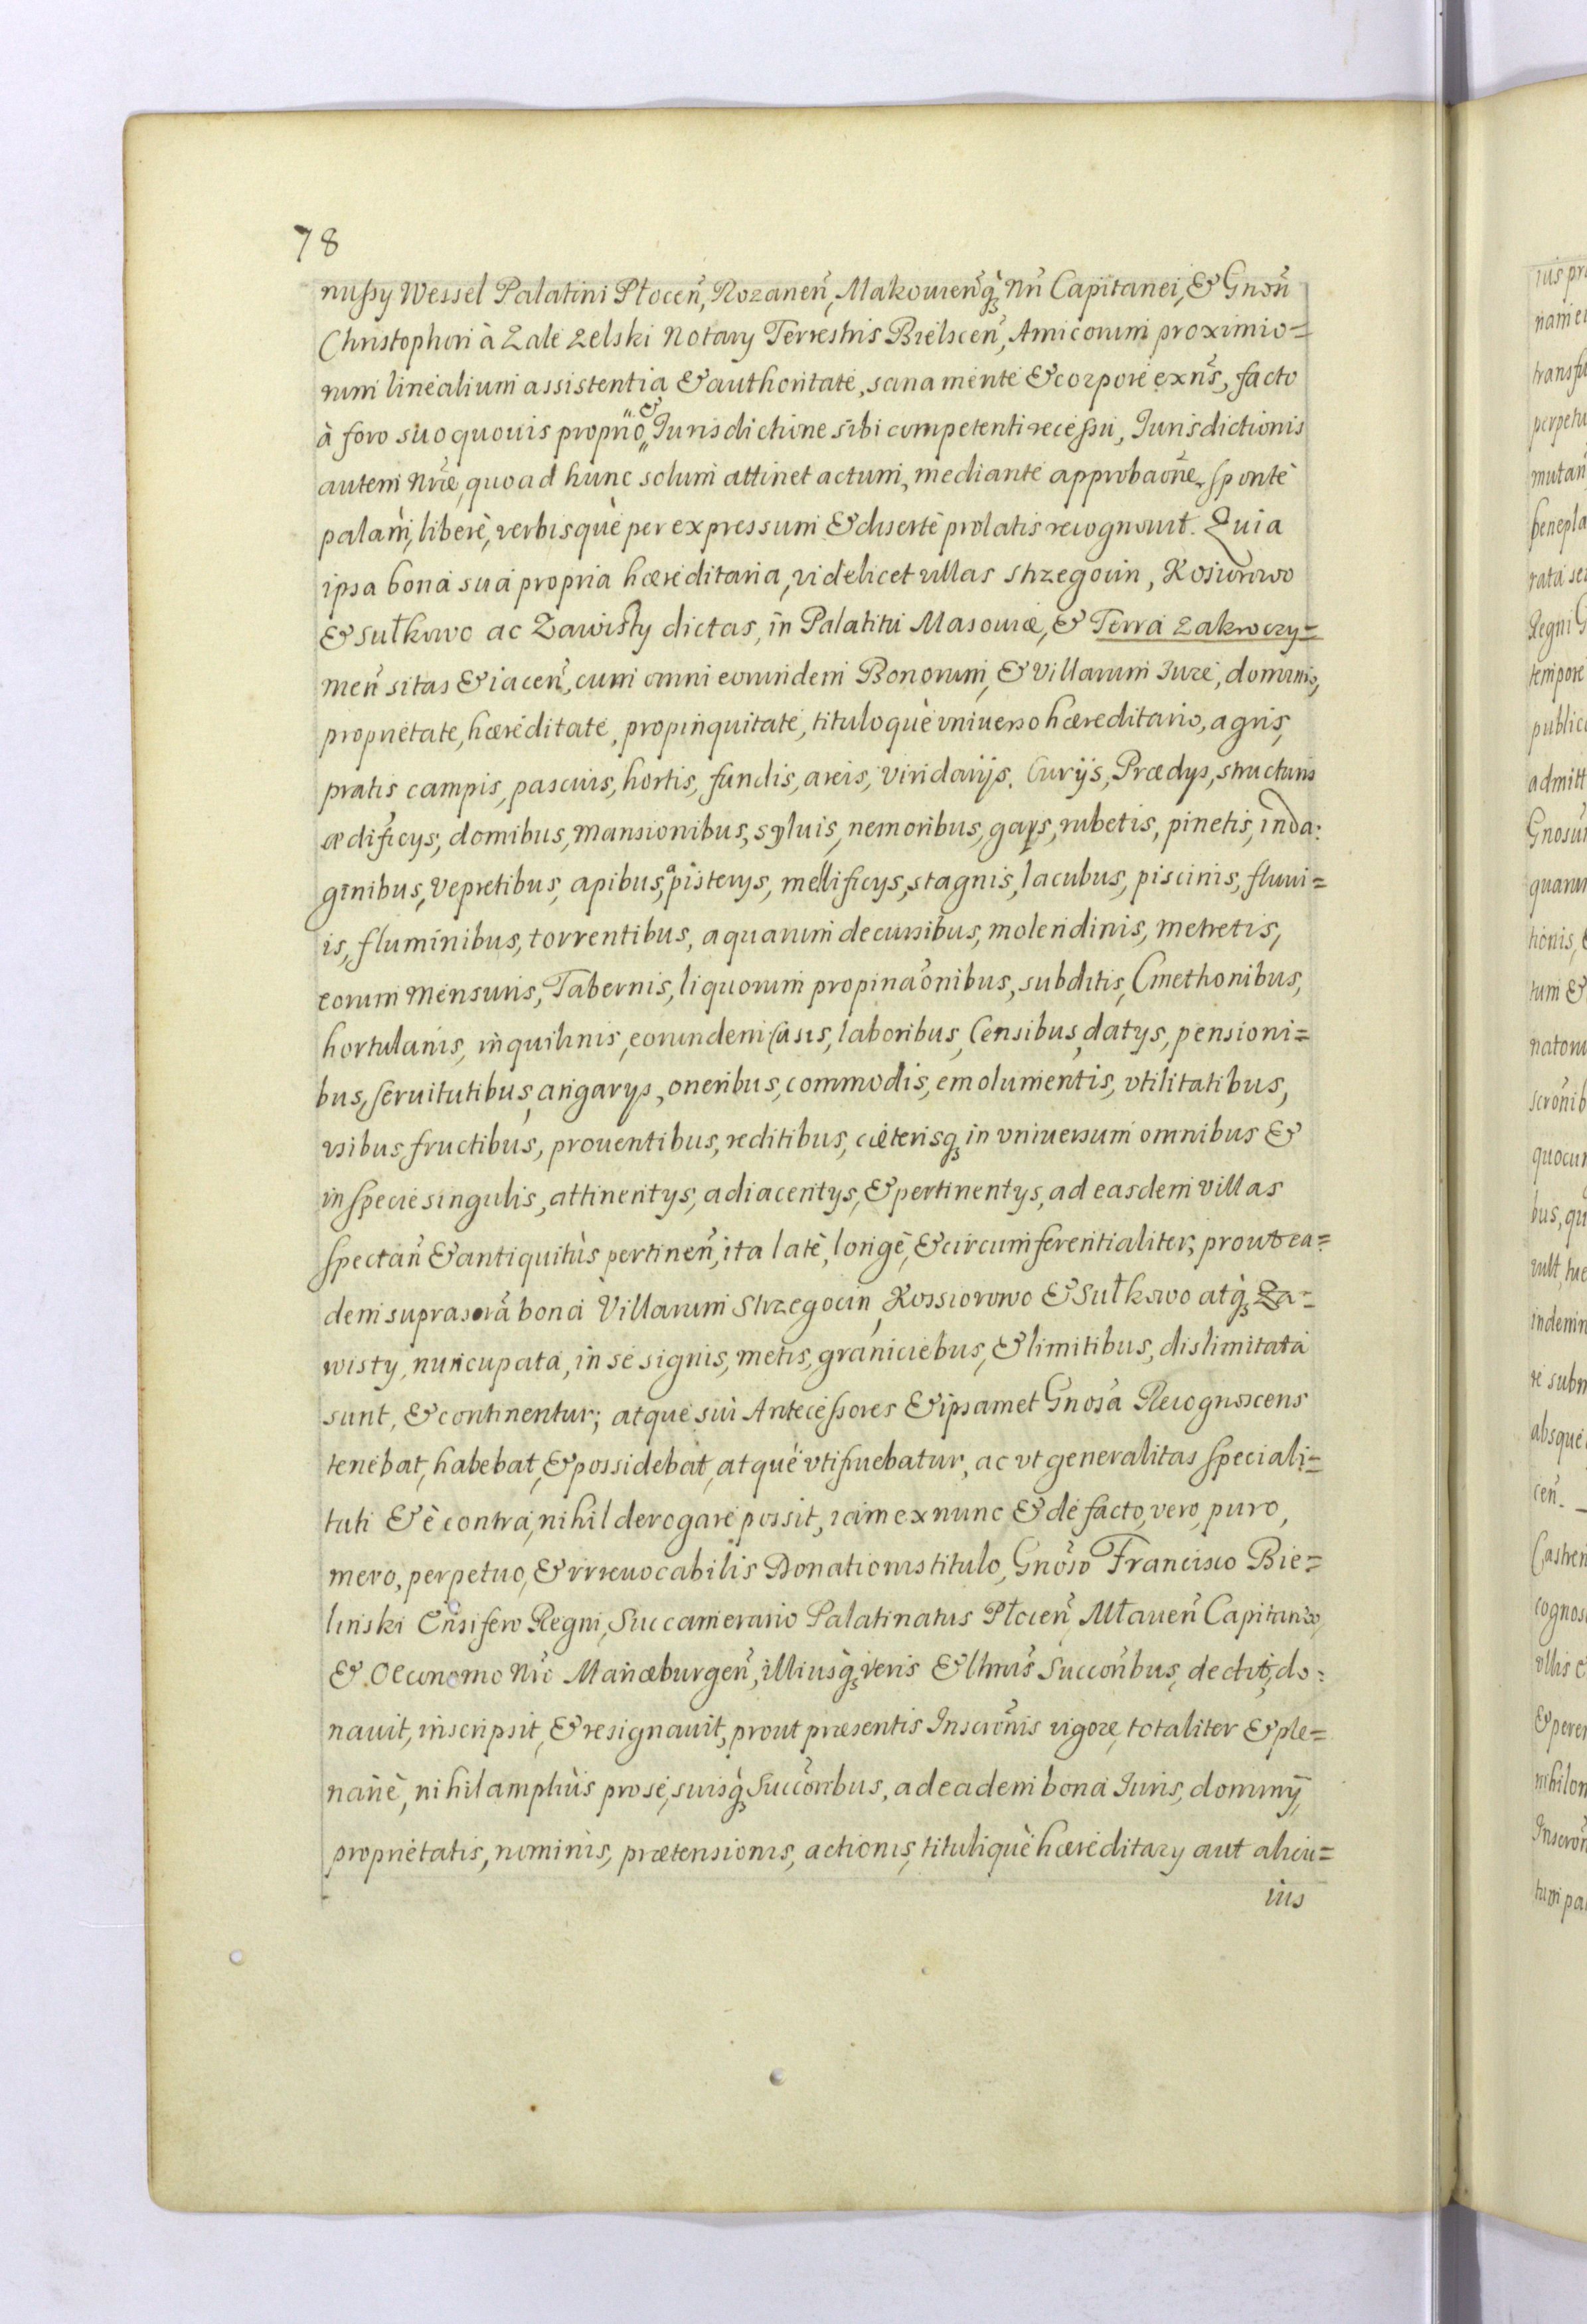 78
nussy Wessel Palatini Płocen̄, Rozanen̄, Makouien̄q̄ꝫ Nri̅ Capitanei, & Gnosi̅
Christophori à Zale Zelski Notary Terrestris Bielscen̄, Amicorum proximio=
rum linealium assistentia & authoritate, sana mente & corpore exn̄s, facto
à foro suo quouis proprio, & Jurisdictione sibi competenti recessu, Jurisdictionis
autem Nræ̅, quo ad hunc solum attinet actum, mediante approbao̅ne, sponte
palam̀, liberè, verbisquè per expressum & disertè prolatis recognouit. Quia
ipsa bona sua propria hæreditaria, videlicet villas Strzegocin, Kosiorowo
& Sułkowo ac Zawisty dictas, in Palatītu Masouiæ, & Terra Zakroczy=
men̄ sitas & iacen̄, cum omni eorundem Bonorum, & Villarum Jure, dominio,
proprietate, hæreditate, propinquitate, tituloquè vniuerso hæreditario, agris,
pratis campis, pascuis, hortis, fundis, areis, viridarijs. Curijs, Prædys, structuris
ædificys, domibus, mansionibus, syluis, nemoribus, gays, rubetis, pinetis, inda:
ginibus, vepretibus, apibus, apisterys, mellificys, stagnis, lacubus, piscinis, fluui=
is, fluminibus, torrentibus, aquarum decursibus, molendinis, metretis,
eorum mensuris, Tabernis, liquorum propinao̅nibus, subditis, Cmethonibus,
hortulanis, inquilinis, eorundem casis, laboribus, Censibus, datys, pensioni=
bus, seruitutibus, angarys, oneribus, commodis, emolumentis, vtilitatibus,
vsibus, fructibus, prouentibus, reditibus, cæterisqꝫ in vniuersum omnibus &
in specie singulis, attinentys, adiacentys, & pertinentys, ad easdem villas
spectan̄ & antiquitùs pertinen̄, ita latè, longè, & circumferentialiter, prout ea=
dem suprascra̅ bona Villarum Strzegocin, Kossiorowo & Sułkowo atq̀ꝫ Za=
wisty, nuncupata, in se signis, metis, graniciebus, & limitibus, dislimitata
sunt, & continentur; atque sui Antecessores & ipsamet Gnosa̅ Recognoscens
tenebat, habebat, & possidebat, atquè vtifruebatur, ac vt generalitas speciali=
tati & è contra, nihil derogare possit, iam ex nunc & de facto, vero, puro,
mero, perpetuo, & irreuocabilis Donationis titulo, Gnoso̅ Francisco Bie=
linski Ensifero Regni, Succamerario Palatinatus Płocen̄ Mławen̄ Capitaneo,
& Oeconomo Nro̅ Mariæburgen̄, illiusq̀ꝫ veris & lt̅mis Succo̅ribus, dedit, do:
nauit, inscripsit, & resignauit, prout præsentis Inscro̅nis vigore, totaliter & ple=
nariè, nihil ampliùs pro se, suisq̀ꝫ Succo̅ribus, ad eadem bona Juris, dominij,
proprietatis, nominis, prætensionis, actionis, tituliquè hæreditary aut alicu=
ius